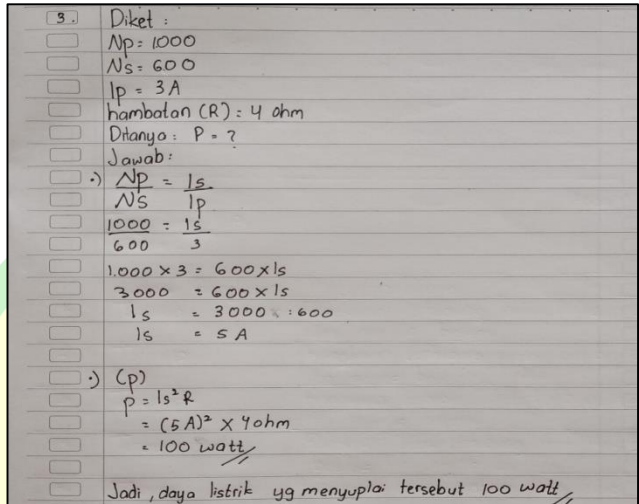 3. Diket :
Np = 1000
Ns = 600
Ip = 3 A
hambatan (R) : 4 ohm
Ditanya : P = ?
Jawab :
•) Np/Ns = Is/Ip
1000/600 = Is/3
1.000 × 3 = 600 × Is
3000 = 600 × Is
Is = 3000 : 600
Is = 5 A
•) (p)
p = Is² R
= (5 A)² × 4 ohm
= 100 watt //
Jadi, daya listrik yg menyuplai tersebut 100 watt //